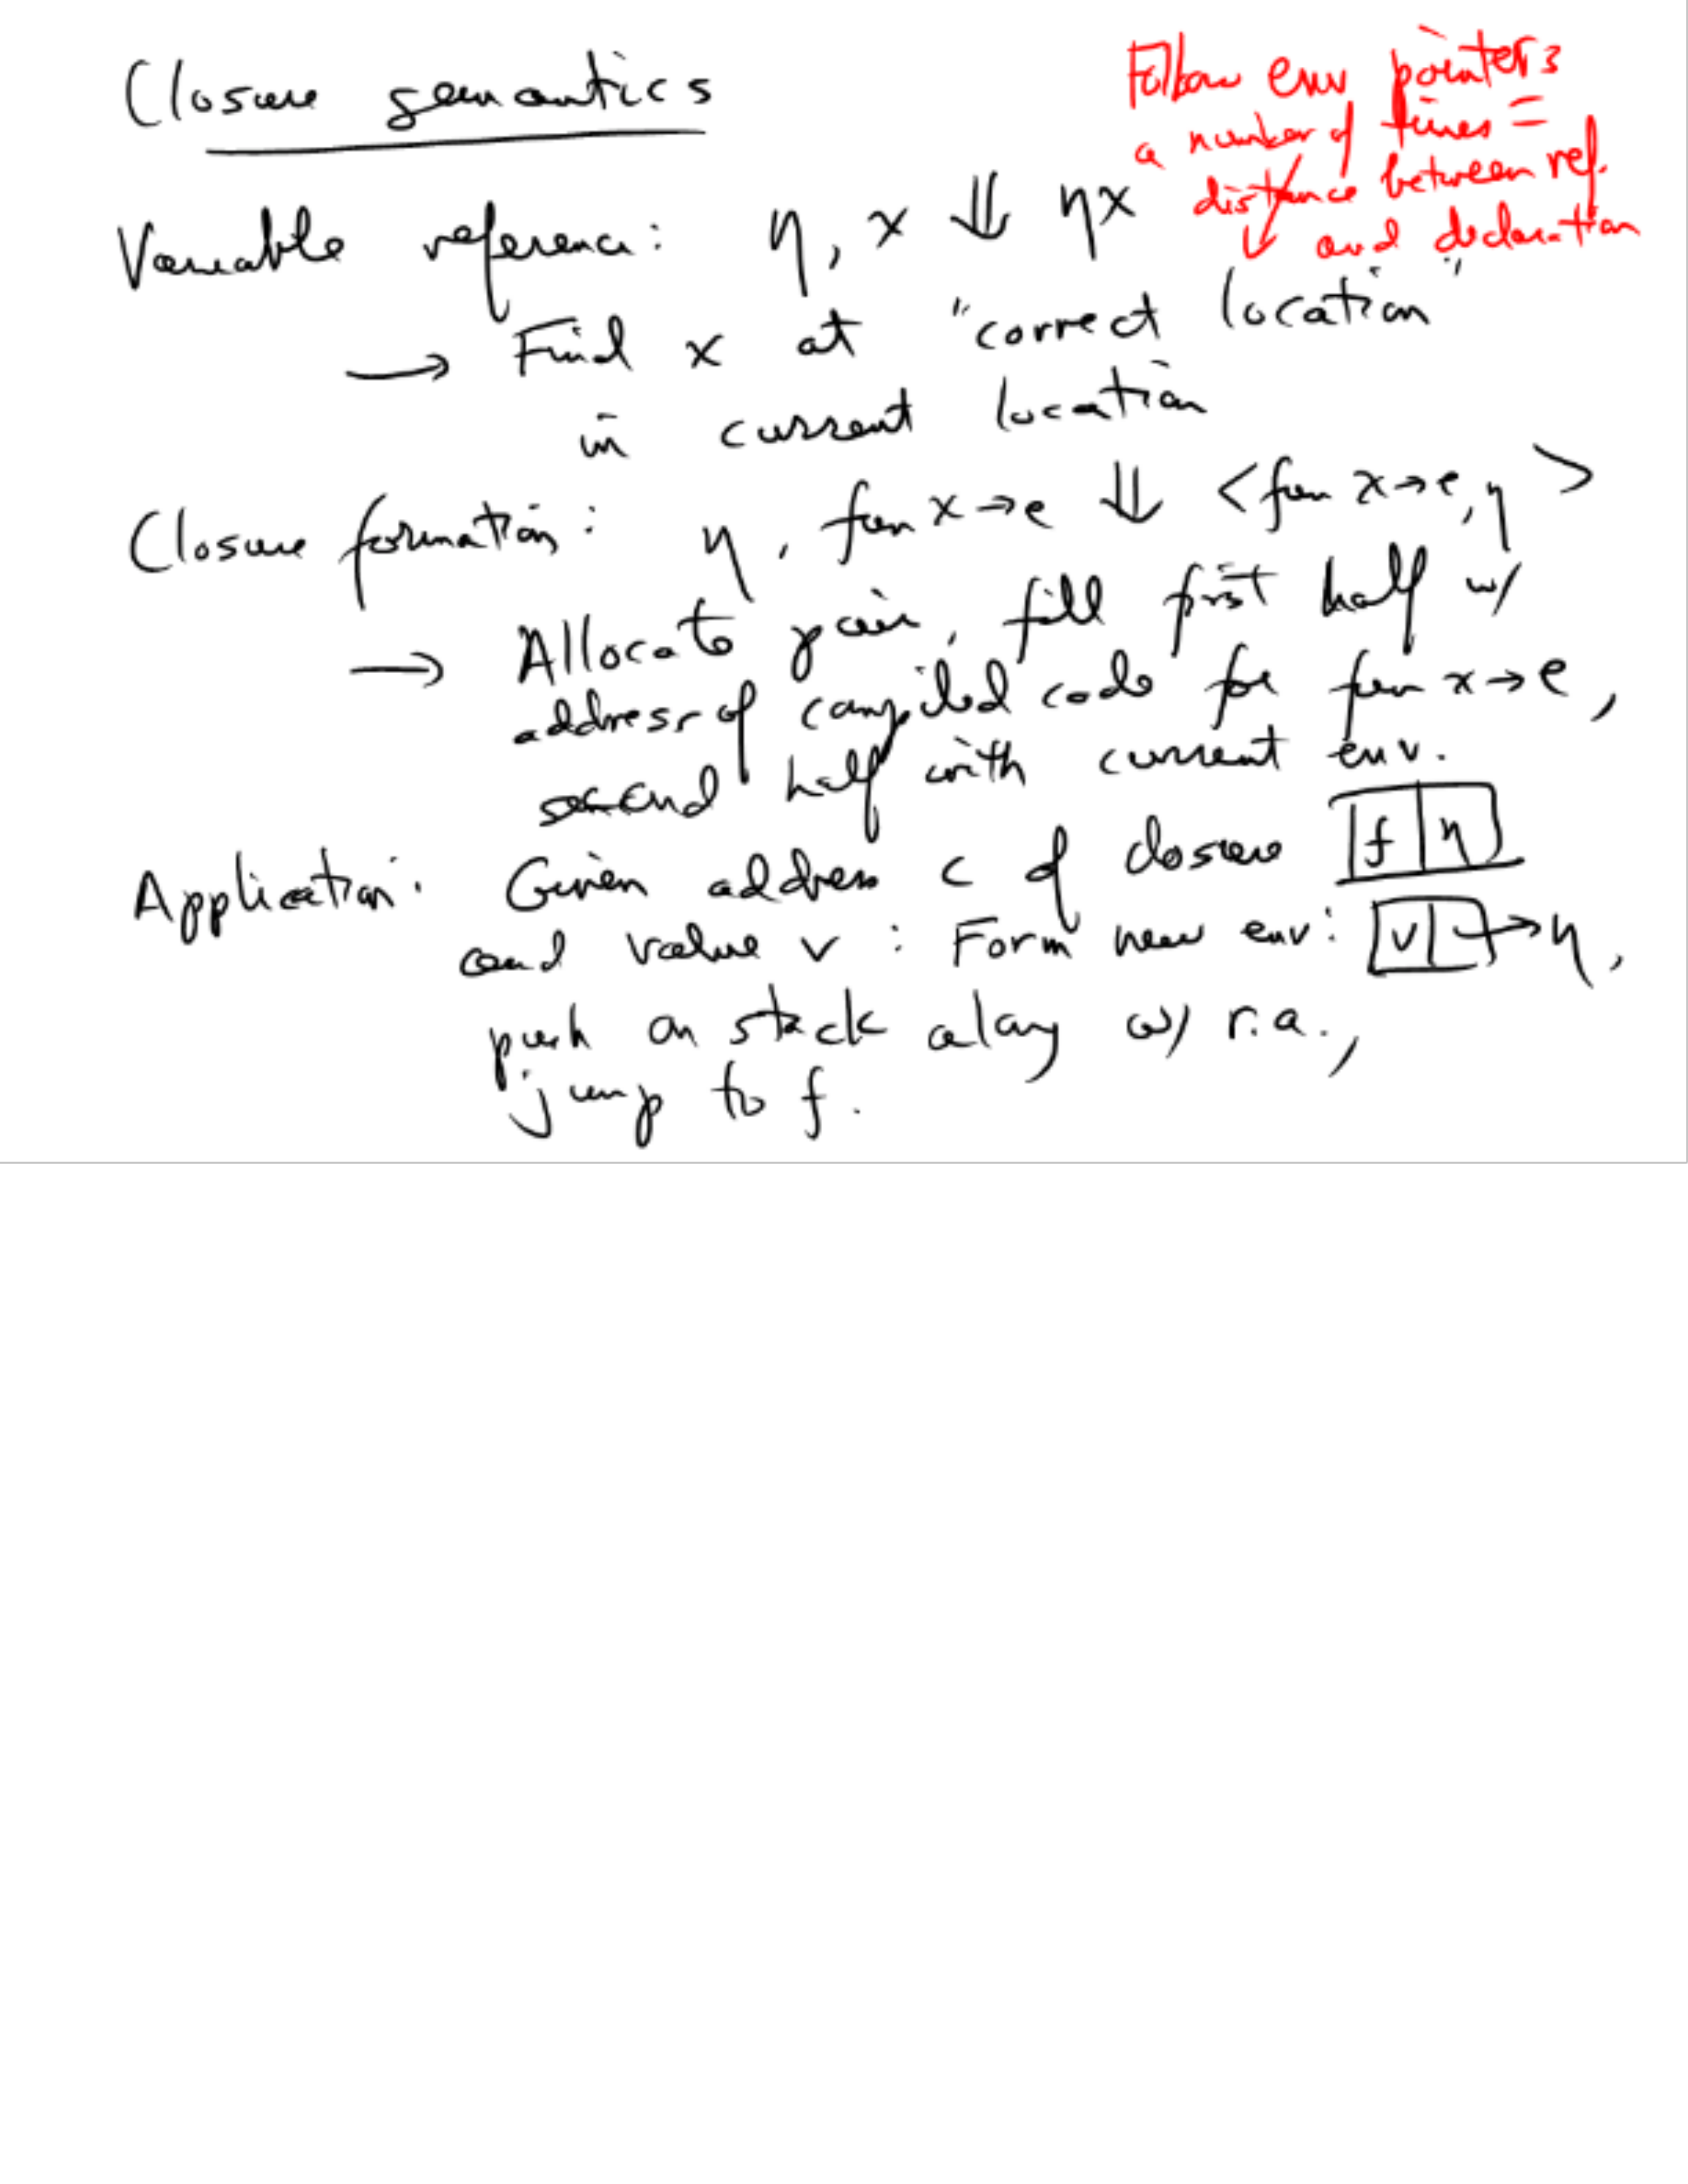 Closure semantics
Follow env pointers
a number of times =
distance between ref.
and declaration
Variable reference: η, x ⇓ ηx
→ Find x at "correct location"
in current location
Closure formation: η, fun x→e ⇓ <fun x→e, η>
→ Allocate pair, fill first half w/
address of compiled code for fun x→e,
second half with current env.
Application: Given address c of closure [f|η]
and value v : Form new env: [v| ]→η,
push on stack along w/ r.a.,
jump to f.